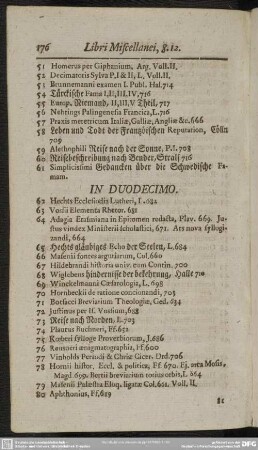 176 Libri Miscellanei, §.12.
51 Homerus per Giphanium, Arg. Voll.II.
52 Decimatoris Sylva P.I & II, L. Voll.II.
53 Brunnemanni examen I. Publ. Hal.714
54 Türckische Fama I, II, III, IV, 716
55 Europ. Niemand, II, III, V Theil, 717
56 Nehrings Palingenesia Francica, L.716
57 Praxis meretricum Italiæ, Galliæ, Angliæ &c.666
58 Leben und Todt der Frantzösischen Reputation, Cölln
709
59 Alethophili Reise nach der Sonne, P.I. 708
60 Reisebeschreibung nach Bender, Strals 716
61 Simplicissimi Gedancken über die Schwedische Fa-
mam.
IN DUODECIMO.
62 Hechts Ecclesiodis Lutheri,
63 Vossii Elementa Rhetor. 651
64 Adagia Erasmiana in Epitomen redacta, Plav. 669. Ju-
stus vindex Ministerii scholastici, 671. Ars nova syllogi-
zandi, 664
65 Hechts gläubiges Echo der Seelen, L.684
66 Masenii fontes argutiarum, Col.660
67 Hildebrandi historia univ. cum Contin. 700
68 Wiglebens hindernisse der bekehrung, Halle 710
69 Winckelmanni Cæsarologie, L.698
70 Hornbeckii de ratione concionandi, 703
71 Botsacci Breviarium Theologiæ, Ged. 634
72 Justinus per If. Vossium, 638
73 Reise nach Norden, L.703
74 Plautus Buchneri, Ff.652
75 Ruberi sylloge Proverbiorum, J.686
76 Reusneri ænigmatographia, Ff.600
77 Vinholds Periudi & Chriæ Cicer. Drd.706
78 Hornii histor. Eccl. & politica, Ff 670. Ej. arca Mosis,
Magd.699. Bertii breviarium totius orbis, L 664
79 Masenii Palæstra Eloq. ligatæ Col.661. Voll. II.
80 Aphthonius, Ff.629